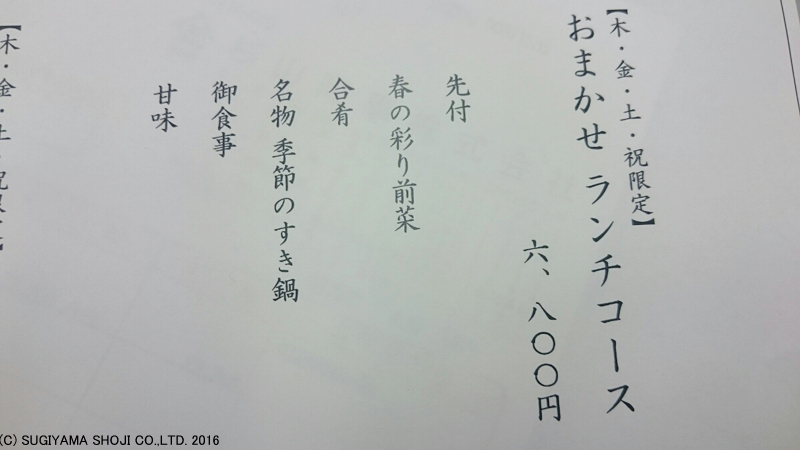 【木・金・土・祝限定】
おまかせ ランチコース
六、八〇〇円
先付
春の彩り前菜
合肴
名物 季節のすき鍋
御食事
甘味
【木・金・土・祝限定】
(C) SUGIYAMA SHOJI CO.,LTD. 2016